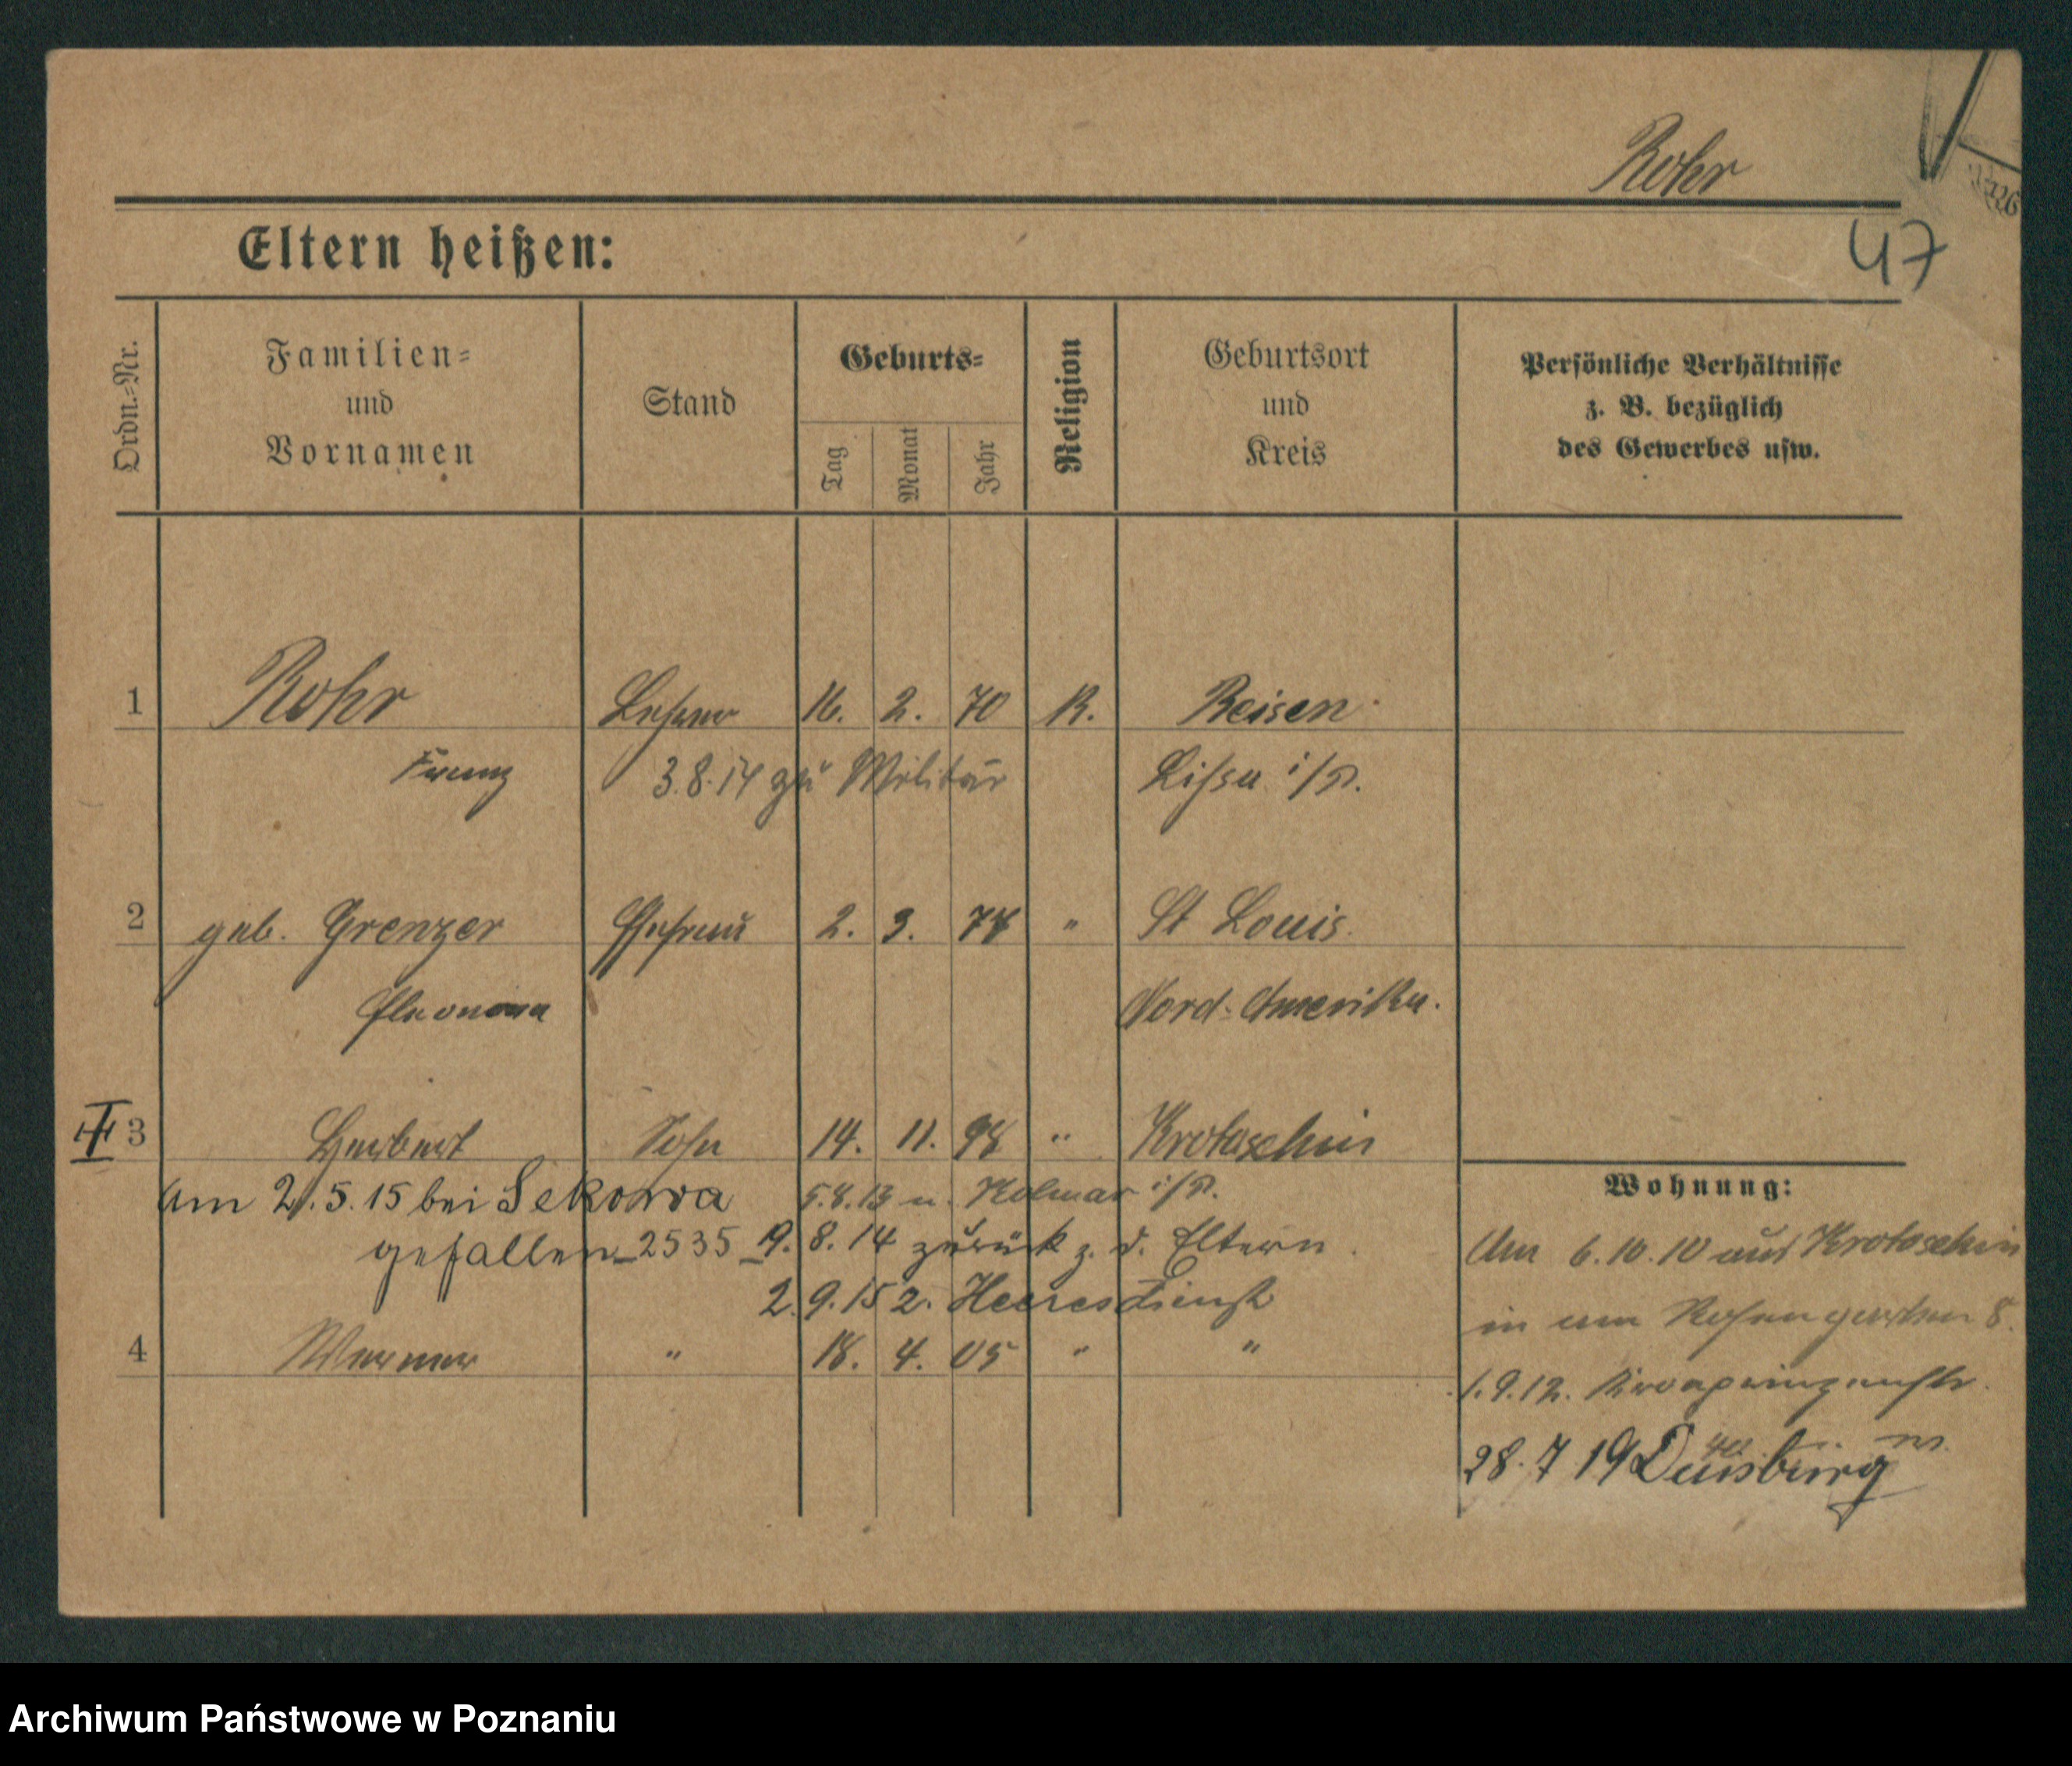 Rohr
47
Eltern heißen:
Ordn.-Nr.
Familien-
und
Vornamen
Stand
Geburts-
Tag
Monat
Jahr
Religion
Geburtsort
und
Kreis
Persönliche Verhältnisse
z. B. bezüglich
des Gewerbes usw.
1 Rohr Lehrer 16. 2. 70 K. Reisen
Franz 3.8.14 zu Militär Lissa i/P.
2 geb. Grenzer Ehefrau 2. 3. 74 " St Louis.
Nord-Amerika.
3 Herbert Sohn 14. 11. 98 " Krotoschin
am 2.5.15 bei Sekowa 5.8.13 n. Kolmar i/P.
gefallen 2535 9.8.14 zurück z. d. Eltern.
2.9.15 z. Heeresdienst
4 Werner " 18. 4. 05 " "
Wohnung:
Am 6.10.10 aus Krotoschin
in am Rosengarten 8.
1.9.12. Kronprinzenstr.
28.7 19 Duisburg
Archiwum Państwowe w Poznaniu